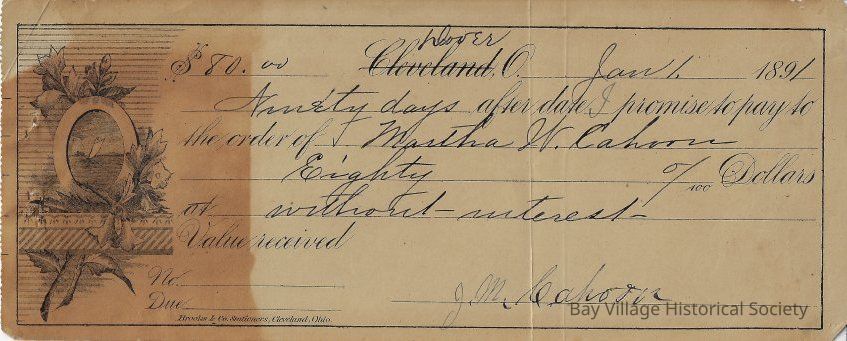 Dover
$ 80.00 Cleveland, O. Jan 1. 1891
Ninety days after date I promise to pay to
the order of Martha W. Cahoon
Eighty 0/100 Dollars
at without interest
Value received
No.
Due
J. M. Cahoon
Bay Village Historical Society
Brooks & Co. Stationers, Cleveland, Ohio.